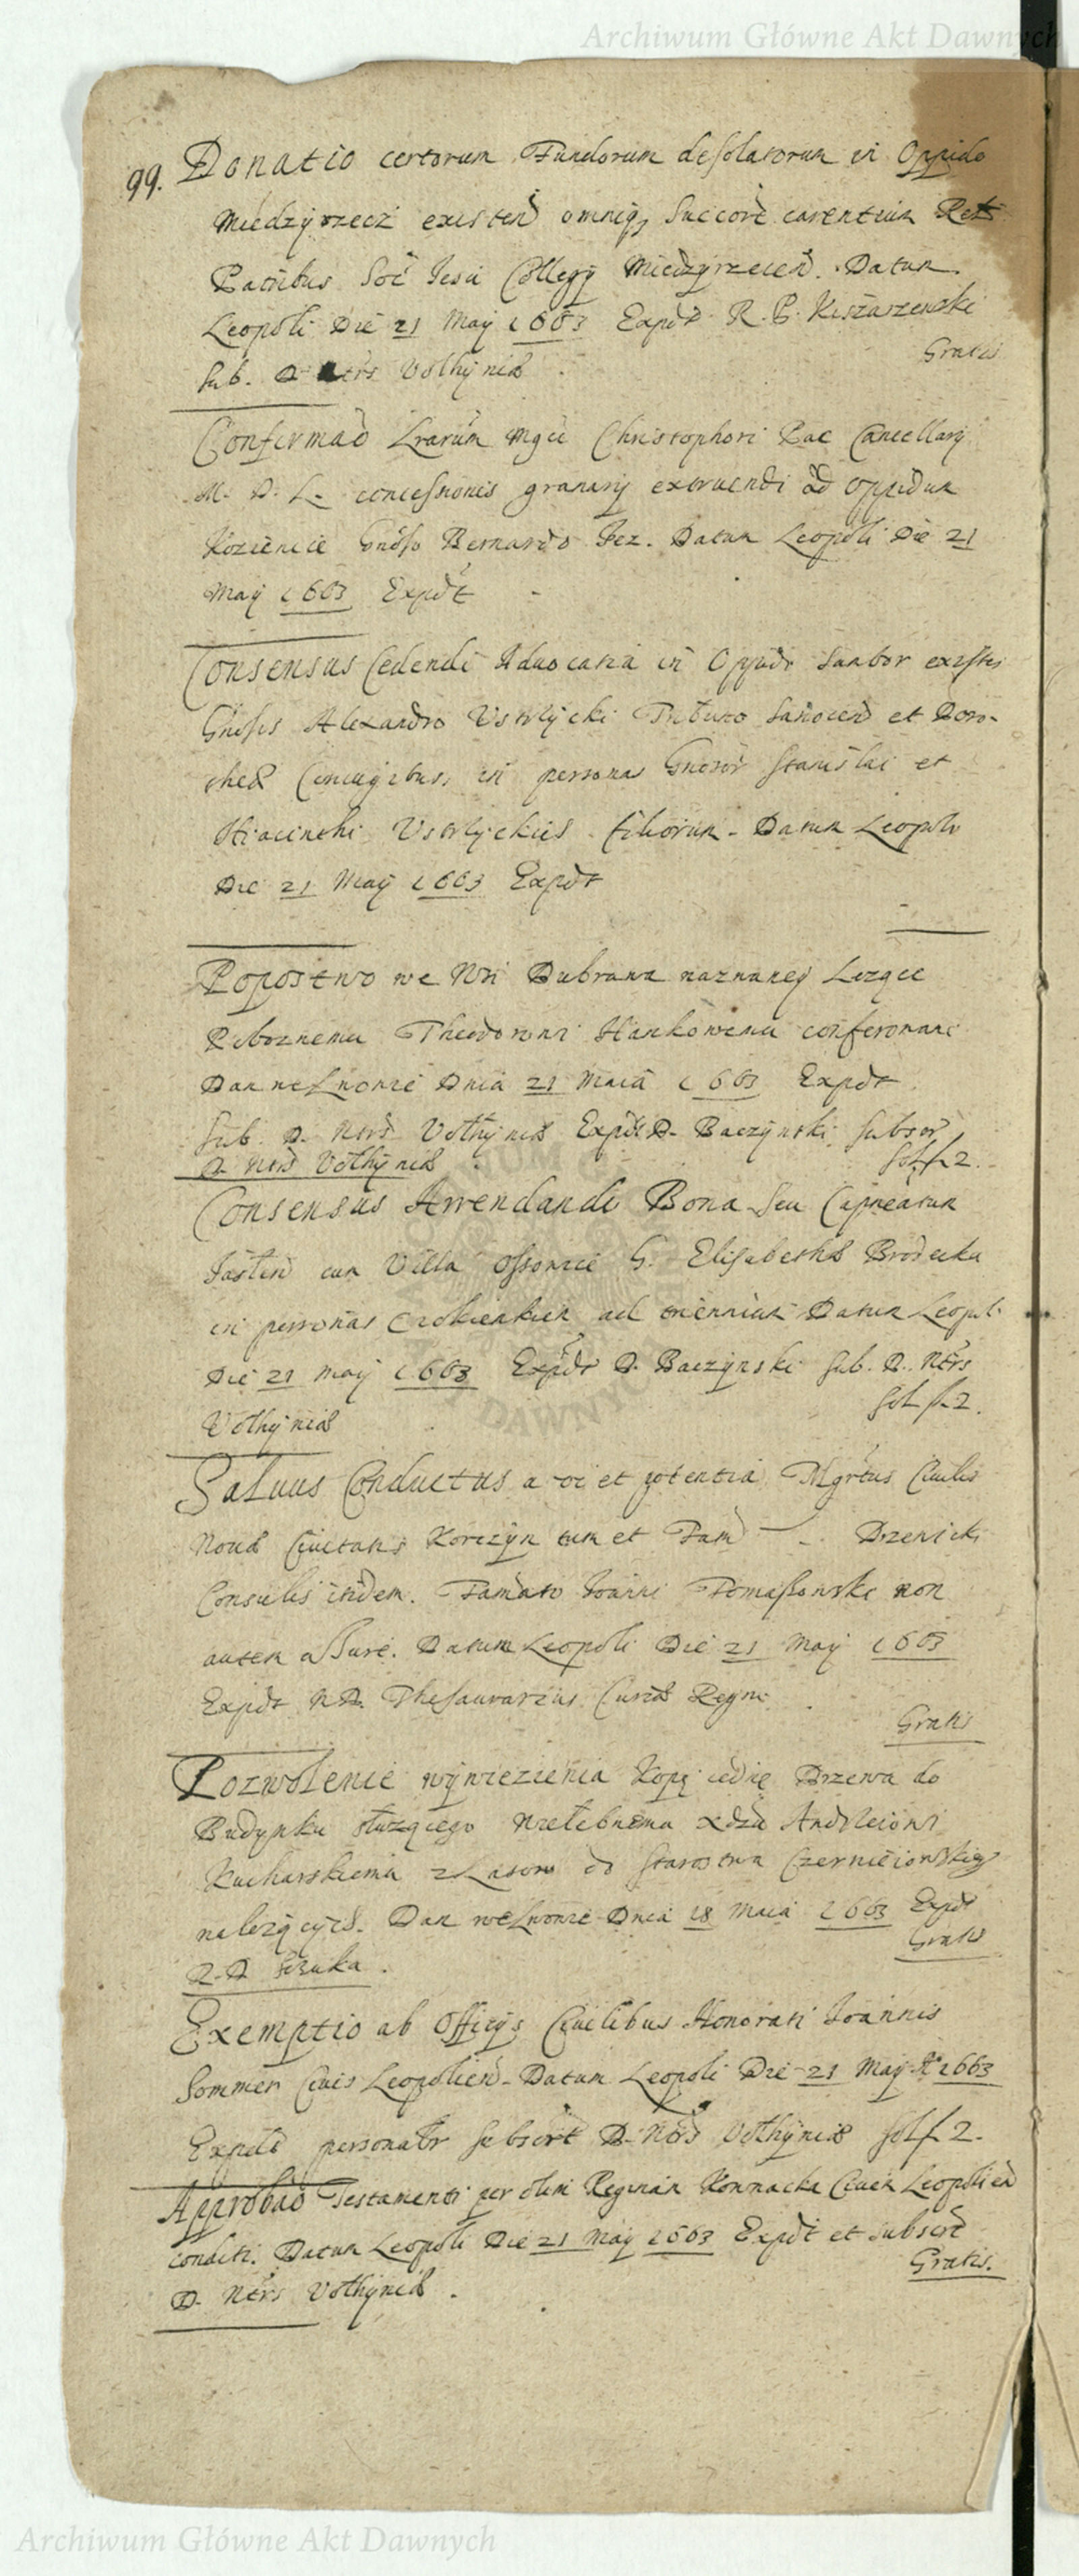 Archiwum Główne Akt Dawnych
99. Donatio certorum Fundorum desolatorum in Oppido
Miedzyrzecz existen omniq, succore carentium
Patribus Soc Iesu Collegy Miedzyrzecen. Datum
Leopoli Die 21 May 1663 Expdt R. P.
Gratis
sub. D Volhyniae
Confirmao Lrarum Mgci Christophori Pac Cancellary
M. D. L. concessionis granary extruendi ad Oppidum
Kozienice Gnoso Bernardo Fez. Datum Leopoli Die 21
May 1663 Expdt
Consensus Cedendi Aduocatia in Oppido Sambor
Gnosis Alexandro Ustrzycki Tribuno Sanocen et Doro-
theae Coniugibus, in personas Gnosor Stanislai et
Hiacinthi Ustrzyckich filiorum. Datum Leopoli
Die 21 May 1663 Expdt
Popostwo we Wsi Dubrawa nazwaney
Poboznemu Theodorowi Hankowemu conferowane
Dan we Lwowie Dnia 21 Maia 1663 Expdt
Sub. D. Volhyniae Expdt D. Baczynski subscr
D. Volhyniae
sol f. 2.
Consensus Arrendandi Bona seu
cum Villa Ossowice G. Elisabetha Brodecka
in personas ad triennium Datum Leopoli
Die 21 May 1663 Expdt D. Baczynski sub. D.
Volhyniae
sol f. 2.
Saluus Conductus a vi et potentia Mgrtus Ciuilis
Nouae Ciuitatis Korczyn tum et Fam Drzewick
Consulis itidem. Famato Ioanni Tomaszowski non
autem a Iure. Datum Leopoli Die 21 May 1663
Expdt Thesaurarius Curiae Regni
Gratis
Pozwolenie wywiezienia Kopę iednę Drzewa do
Budynku służącego Wielebnemu xdzu Andrzeiowi
Kucharskiemu z Lasow do Starostwa
nalezących. Dan we Lwowie Dnia 18 Maia 1663 Expdt
Gratis
Exemptio ab Officys Ciuilibus Honorati Ioannis
Sommer Ciuis Leopolien. Datum Leopoli Die 21 May Ao 1663
Expdt personalr subscrt D. Volhyniae sol f. 2.
Approbao Testamenti per olim Reginam Ciuem Leopolien
conditi. Datum Leopoli Die 21 May 1663 Expdt et subscrt
Gratis.
D. Volhyniae.
Archiwum Główne Akt Dawnych